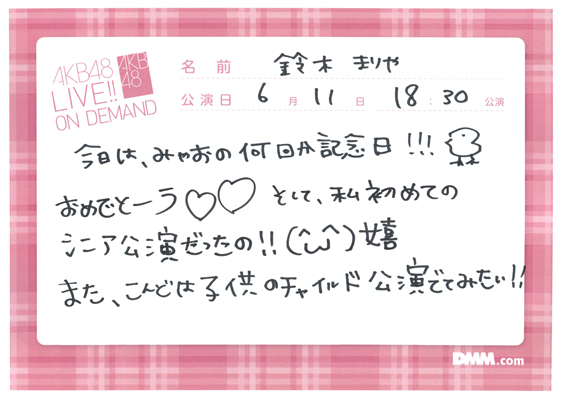 AKB48
LIVE!!
ON DEMAND
AKB
48
名前 鈴木 まりや
公演日 6月11日 18:30公演
今日は、みゃおの何回か記念日!!!
おめでとーう♡♡ そして、私初めての
シニア公演だったの!!(^ω^)嬉
また、こんどは子供のチャイルド公演ででてみたい!!
DMM.com